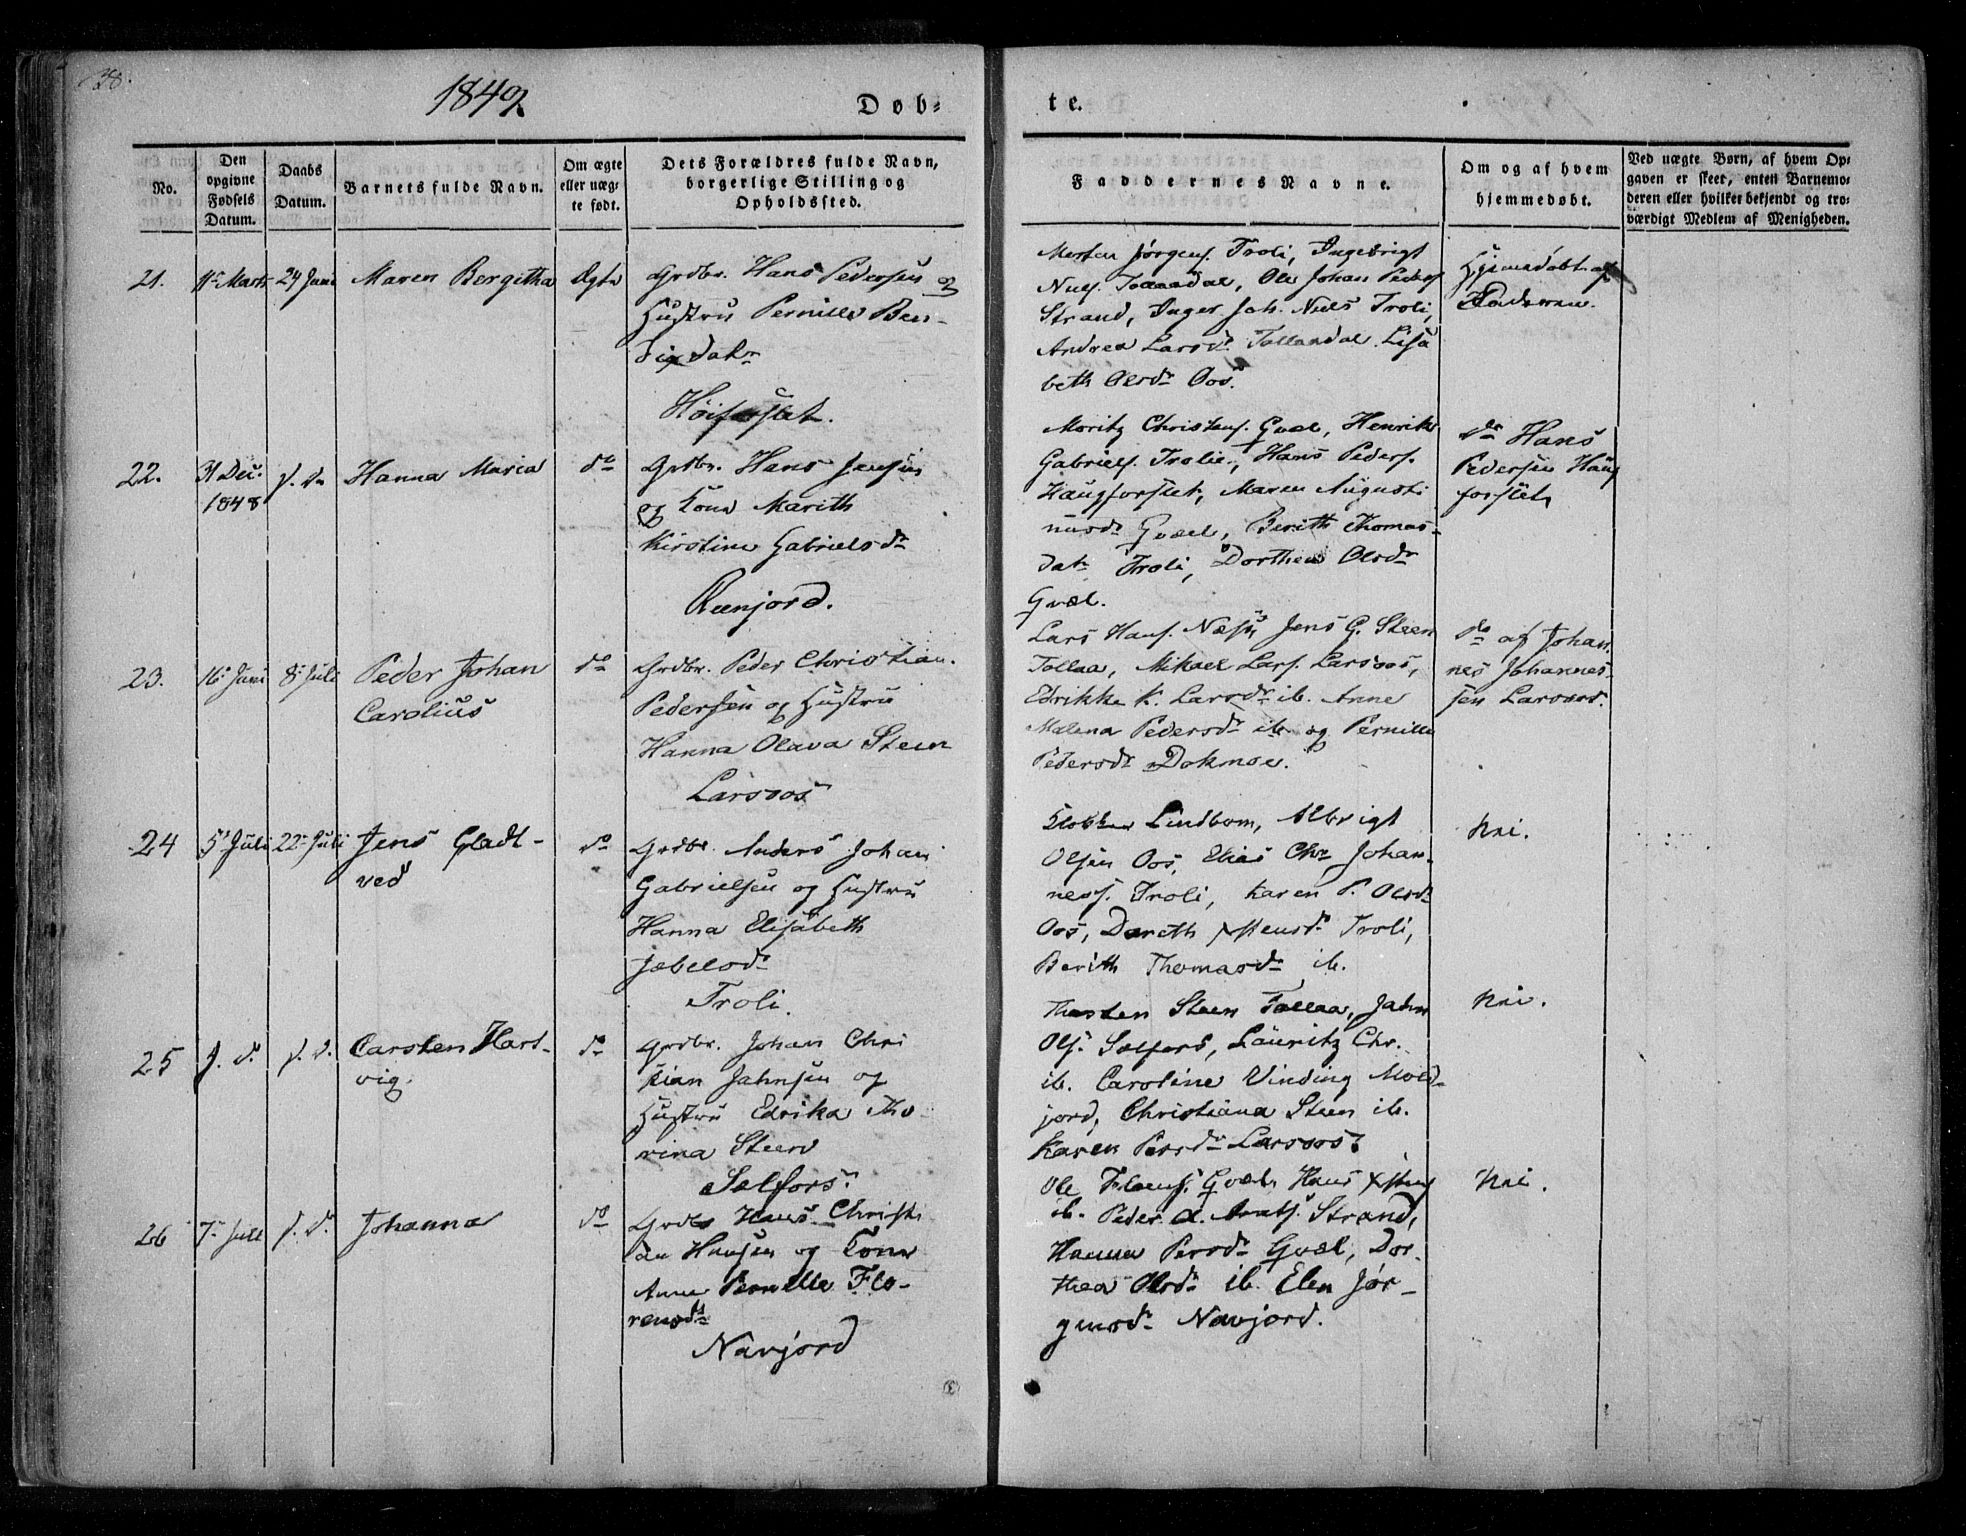 38.
1849.
Døb-
te.
No.
Den opgivne Fødsels Datum.
Daabs Datum.
Barnets fulde Navn.
Om ægte eller uægte født.
Dets Forældres fulde Navn, borgerlige Stilling og Opholdssted.
Faddernes Navne.
Om og af hvem hjemmedøbt.
Ved uægte Børn, af hvem Opgaven er skeet, enten Barnemoderen eller hvilket bekjendt og troværdigt Medlem af Menigheden.
21.
11te Marts
24 Juni
Maren Bergitha
Ægte
Grdbr. Hans Pedersen og
Hustru Pernille Ben-
digdatr
Høiforslet.
Morten Jørgens. Troli, Ingebrigt
Niels. Tollaadal, Ole Johan Peders
Strand, Inger Joh. Niels Troli,
Andrea Larsdr Tollaadal Lisa
beth Olsdr Oos.
Hjemmedøbt af
Faderen.
22.
31 Dec.
1848
s. D.
Hanna Maria
do
Grdbr. Hans Jensen
og Kone Marith
Kirstine Gabrielsdr
Reenjord.
Moritz Christens. Qvæl, Henrik
Gabriels. Troli, Hans Peders.
Haugforslet, Maren Augusti
nusdr Qvæl, Berith Thomas-
datr Troli, Dorthea Olsdr
Qvæl.
do Hans
Pedersen Haug
forslet
23.
16 Juni
8 Juli
Peder Johan
Carolius
do
Grdbr. Peder Christian
Pedersen og Hustru
Hanna Olava Steen
Larsoos
Lars Hans. Næss, Jens G. Steen
Tollaa, Mikael Lars. Larsoos,
Edrikke K. Larsdr ib. Anne
Malena Pedersdr ib. og Pernille
Pedersdr Dokmoe.
do af Johan
nes Johannes-
sen Larsoos.
24
5 Juli
22 Juli
Jens Gladt-
ved
do
Grdbr. Anders Johan
Gabrielsen og Hustru
Hanna Elisabeth
Jæbelsdr
Troli.
Klokker Lindbom, Albrigt
Olsen Oos, Elias Chr Johan-
ness. Troli, Karen P. Olsdr
Oos, Dareth Xstensdr Troli,
Berith Thomasdr ib.
Nei.
25
s. D.
s. D.
Carsten Hart-
vig.
do
Grdbr. Johan Chri
stian Jahnsen og
Hustru Edrika Tho-
rina Steen
Selfors.
Thosten Steen Tollaa, Jahn
Ols. Selfors, Lauritz Chr.
ib. Caroline Vinding Mold-
jord, Christiana Steen ib.
Karen Persdr Larsoos.
Nei.
26
7 Juli
s. D.
Johanna
do
Grdbr Hans Christi
an Hansen og Kone
Anne Pernille Flo-
rensdr
Navjord
Ole Qvæl, Hans Xstens
ib. Peder A. Arnts. Strand,
Hanna Persdr Qvæl, Dor-
thea Olsdr ib. Elen Jør-
gensdr Navjord.
Nei.